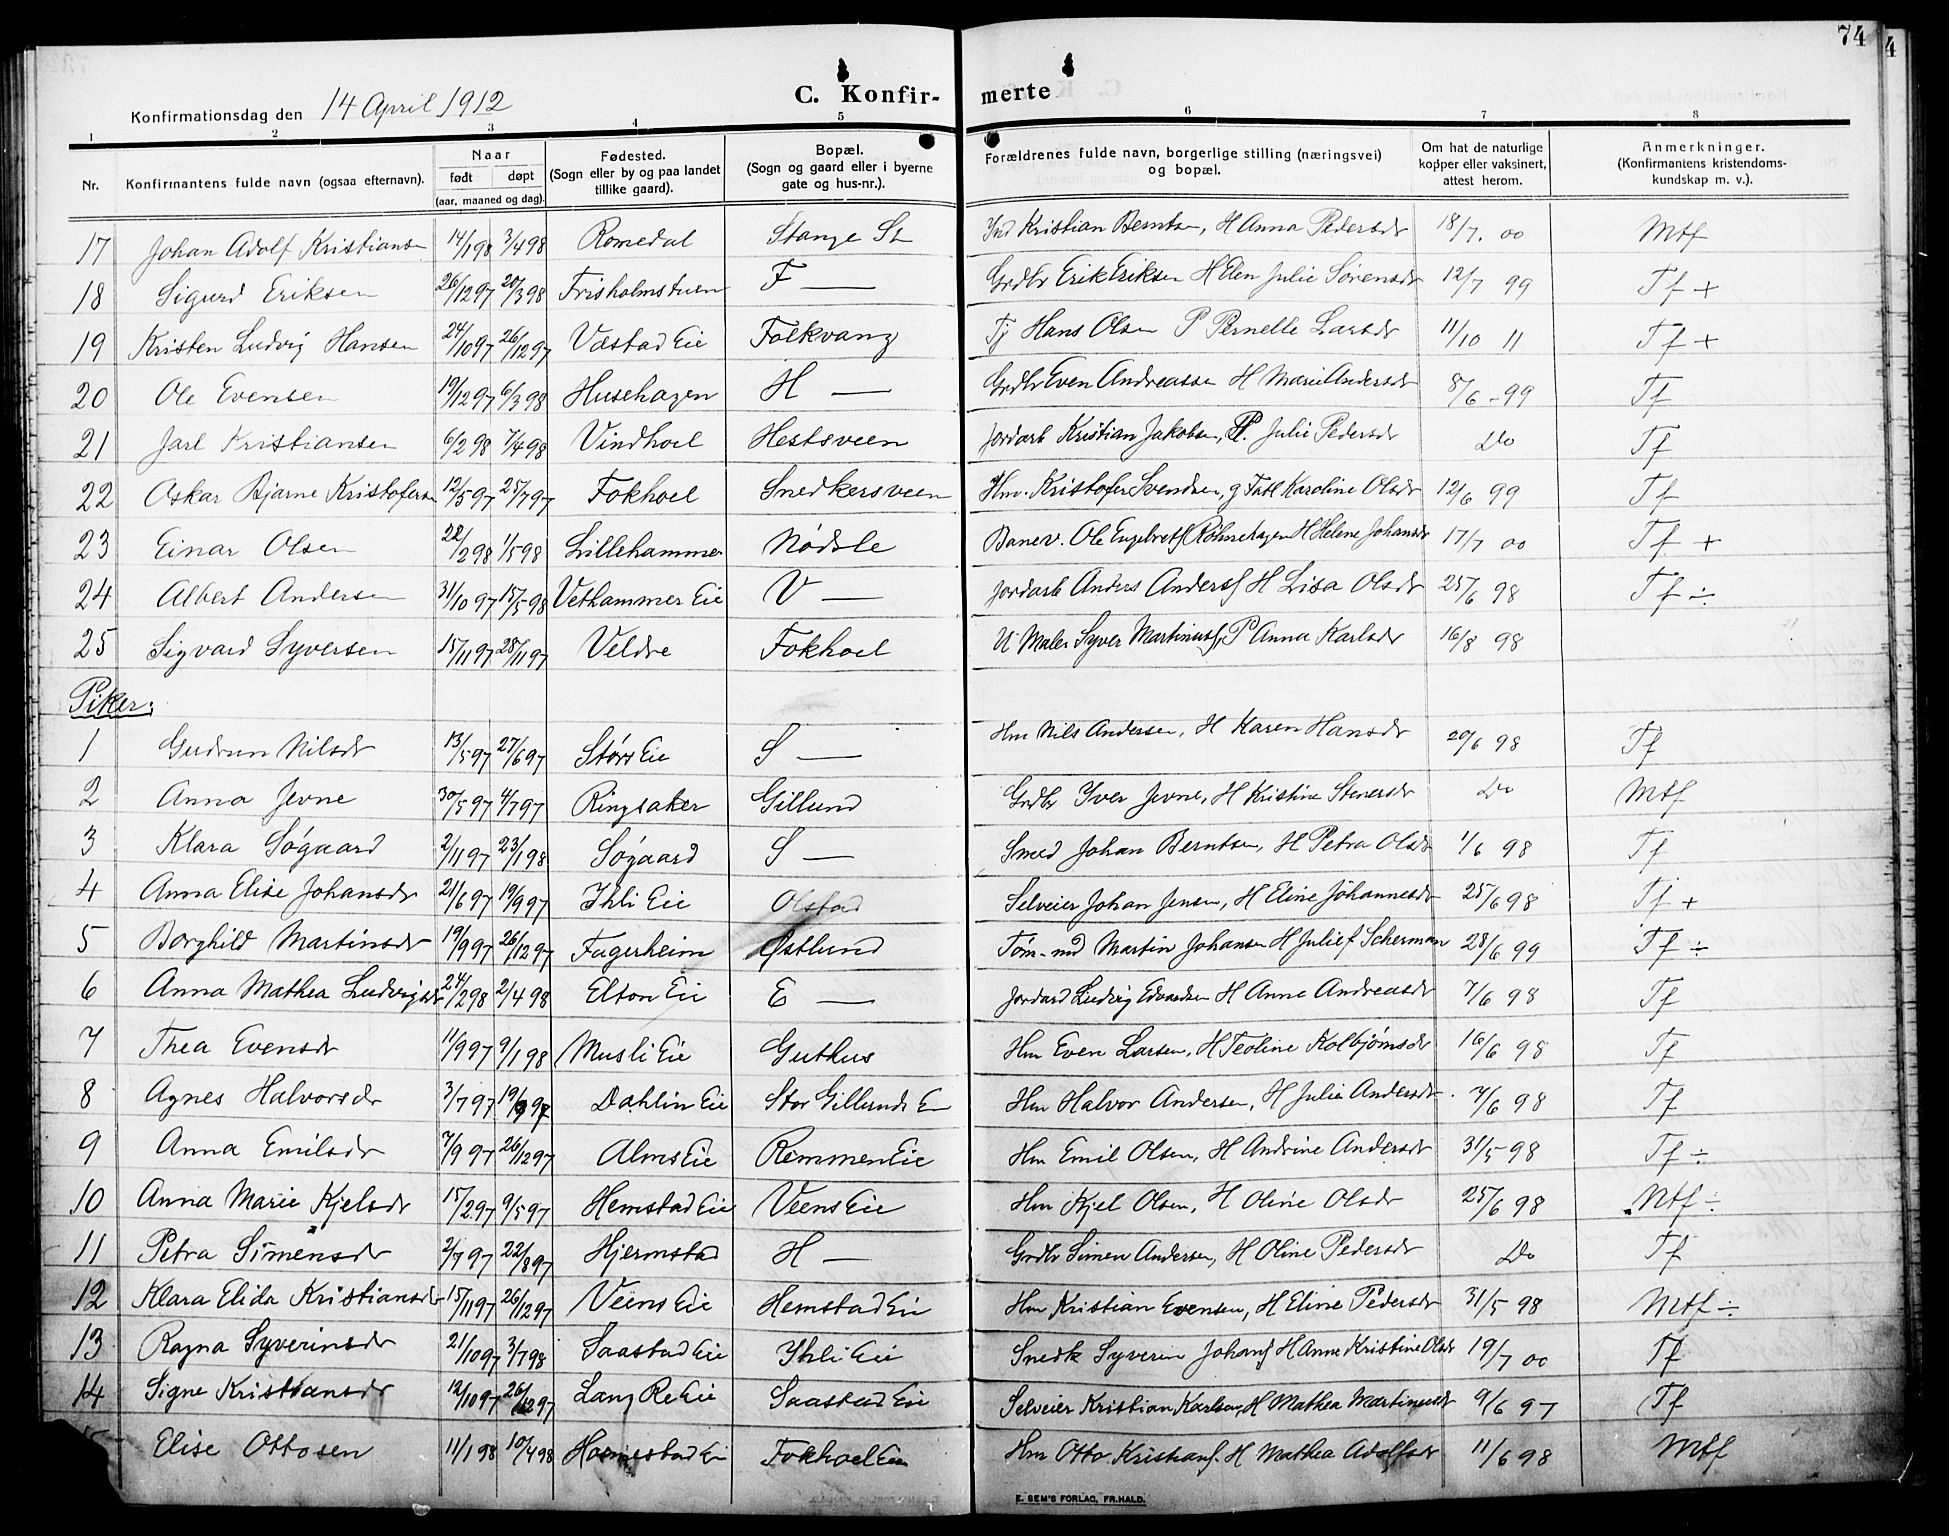 74
4
Konfirmationsdag den 14 April 1912 C. Konfir- merte
1 2 3 4 5 6 7 8
Nr. Konfirmantens fulde navn (ogsaa efternavn). Naar født døpt (aar, maaned og dag). Fødested. (Sogn eller by og paa landet tillike gaard). Bopæl. (Sogn og gaard eller i byerne gate og hus-nr.). Forældrenes fulde navn, borgerlige stilling (næringsvei) og bopæl. Om hat de naturlige kopper eller vaksinert, attest herom. Anmerkninger. (Konfirmantens kristendoms- kundskap m. v.).
17 Johan Adolf Kristiansen 14/1 98 3/4 98 Romedal Stange St Kristian Berntsen, H Anna Pedersdr 18/7. 00 Mtf
18 Sigurd Eriksen 26/12 97 20/3 98 Frisholmstuen F — Grdbr Erik Eriksen H Elen Julie Sørensdr 12/7 99 Tf +
19 Kristen Ludvig Hansen 24/10 97 26/12 97 Væstad Eie Folkvang Tj Hans Olsen P Pernelle Larsdr 11/10 11 Tf +
20 Ole Evensen 19/12 97 6/3 98 Husehagen H — Grdbr Even Andreassen H Marie Andersdr 8/6 - 99 Tf
21 Jarl Kristiansen 6/2 98 7/4 98 Vindhoel Hestsveen Jordarb Kristian Jakobsen, P. Julie Pedersdr Do Tf
22 Oskar Bjarne Kristofersen 12/5 97 25/7 97 Fokhoel Snedkersveen Hm. Kristofer Svendsen, g Fatt Karoline Olsdr 12/6 99 Tf
23 Einar Olsen 22/2 98 1/5 98 Lillehammer Nødsle Banev. Ole Engebretsf Røhnehagen H Helene Johansdr 17/7 00 Tf +
24 Albert Andersen 31/10 97 15/5 98 Vethammer Eie V — Jordarb Anders Andersf H Lisa Olsdr 25/6 98 Tf ÷
25 Sigvard Syversen 15/11 97 28/11 97 Veldre Fokhoel U Maler Syver Martinusf, P Anna Karlsdr 16/8 98
Piker:
1 Gudrun Nilsdr 13/5 97 27/6 97 Størs Eie S — Hm Nils Andersen, H Karen Hansdr 20/6 98 Tf
2 Anna Jevne 30/5 97 4/7 97 Ringsaker Gillund Grdbr Yver Jevne, H Kristine Stenersdr Do Mtf
3 Klara Søgaard 2/11 97 23/1 98 Søgaard S — Smed Johan Berntsen, H Petra Olsdr 1/6 98 Tf
4 Anna Elise Johansdr 21/6 97 19/9 97 Ihli Eie Olstad Selveier Johan Jensen, H Eline Johannesdr 25/6 98 Tf +
5 Borghild Martinsdr 19/9 97 26/12 97 Fagerheim Østlund Tøm-md Martin Johansen H Julie f Scherman 28/6 99 Tf ÷
6 Anna Mathea Ludvigsdr 24/2 98 2/4 98 Elton Eie E — Jordarb Ludvig Edvardsen H Anne Andreasdr 7/6 98 Tf
7 Thea Evensdr 11/9 97 9/1 98 Musli Eie Guthus Hm Even Larsen, H Teoline Kolbjørnsdr 16/6 98 Tf
8 Agnes Halvorsdr 3/7 97 19/9 97 Dahlin Eie Stor Gillunds E Hm Halvor Andersen, H Julie Andersdr. 7/6 98 Tf
9 Anna Emilsdr 7/9 97 26/12 97 Alms Eie Remmen Eie Hm Emil Olsen, H Andrine Andersdr 31/5 98 Tf ÷
10 Anna Marie Kjelsdr 15/2 97 9/5 97 Hemstad Eie Veens Eie Hm Kjel Olsen, H Oline Olsdr 25/6 98 Mtf ÷
11 Petra Simensdr 2/7 97 22/8 97 Hjermstad H — Grdbr Simen Andersen, H Oline Pedersdr Do Tf
12 Klara Elida Kristiansdr 15/11 97 26/12 97 Veens Eie Hemstad Eie Hm Kristian Evensen, H Eline Pedersdr 31/5 98 Mtf ÷
13 Ragna Syverinsdr 21/10 97 3/7 98 Saastad Eie Ihli Eie Snedk Syverin Johansf H Anne Kristine Olsdr 19/7 00 Tf
14 Signe Kristiansdr 12/10 97 26/12 97 Lang Re Eie Saastad Eie Selveier Kristian Karlsen, H Mathea Martinusdr 9/6 97 Tf
15 Elise Ottosen 11/1 98 10/4 98 Hosmestad Ei Fokhoel Eie Hm Otto Kristiansf. H Mathea Adolfsdr 11/6 98 Mtf
E. SEM'S FORLAG, FR.HALD.